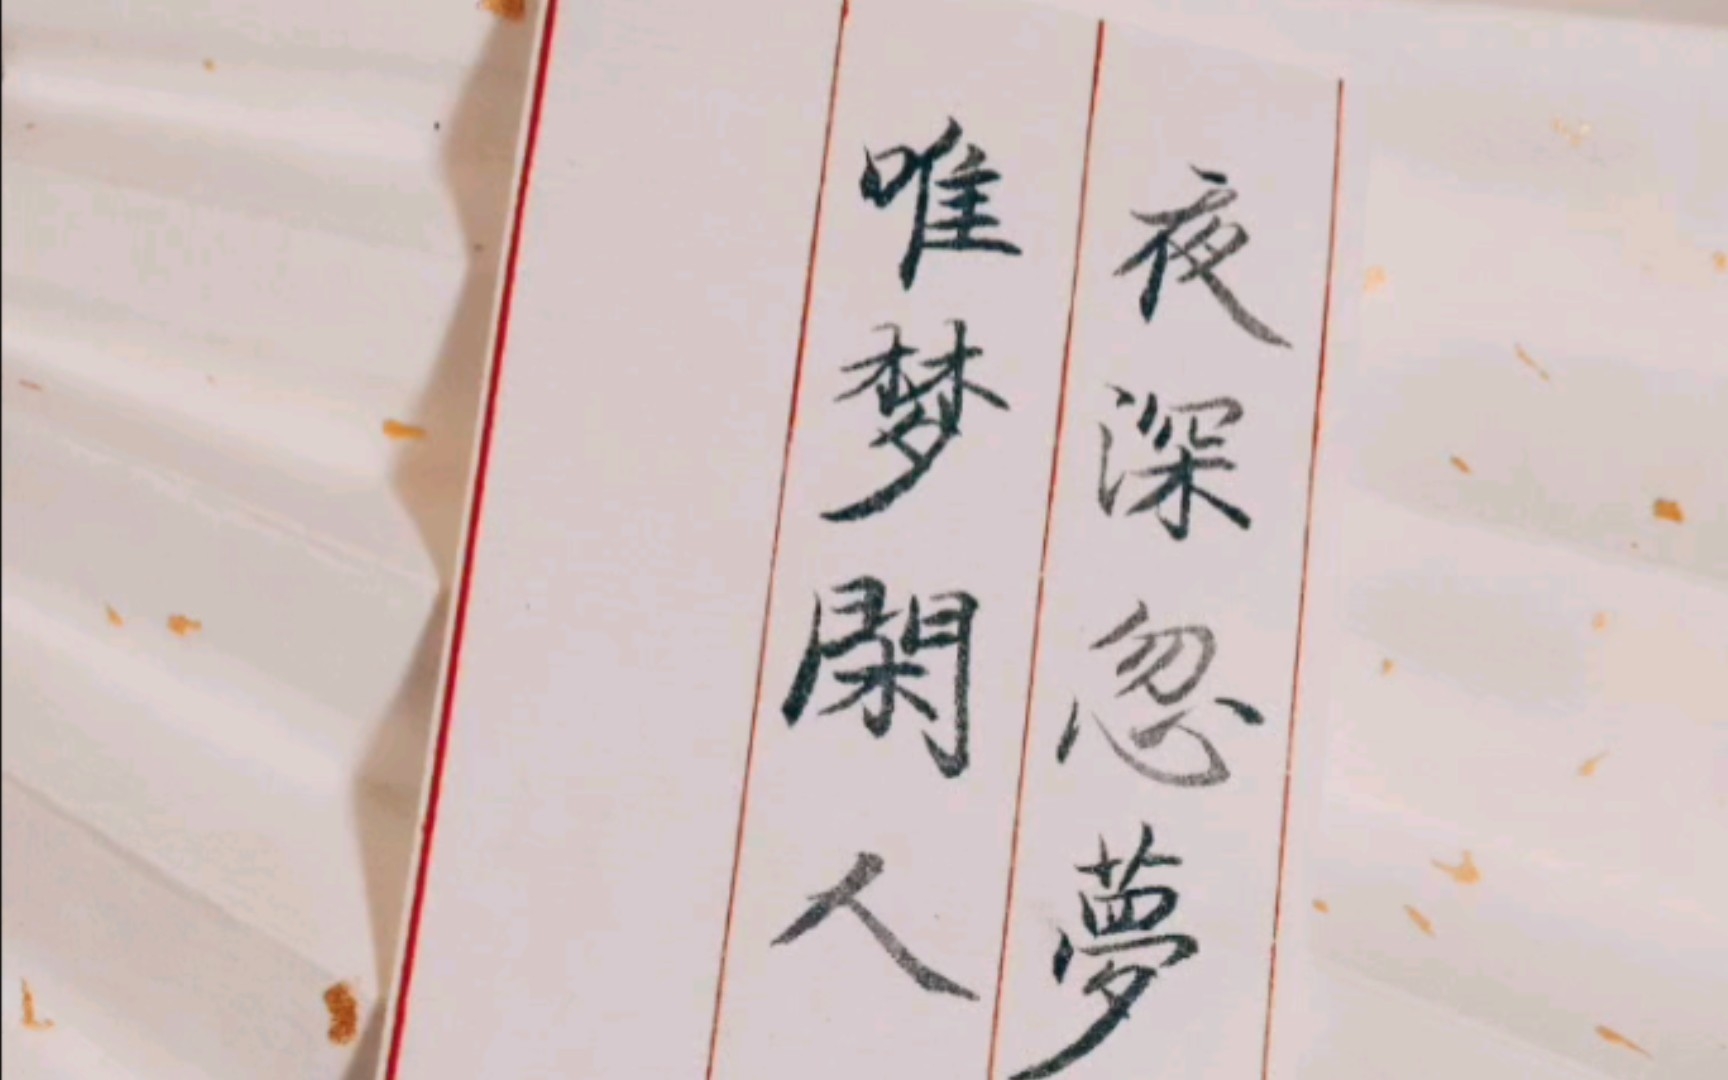 夜深忽夢
唯梦閑人